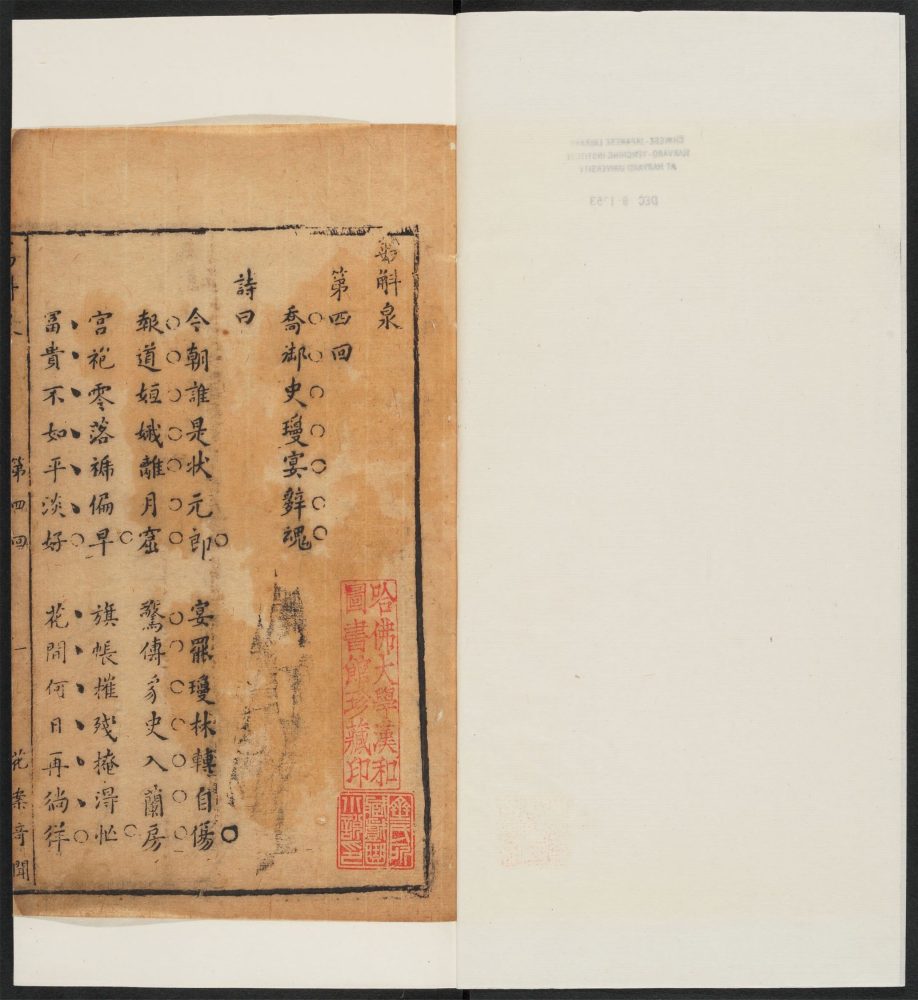 斛泉
第四回
喬御史瓊宴辭魂
詩曰
今朝誰是状元郎　宴罷瓊林轉自傷
報道姮娥離月窟　驚傳豸史入蘭房
宫袍零落褫偏早　旗帳摧残掩淂忙
富貴不如平淡好　花間何日再徜徉
第四回　一　花案竒聞
哈佛大學漢和
圖書館珍藏印
CHINESE-JAPANESE LIBRARY
HARVARD-YENCHING INSTITUTE
AT HARVARD UNIVERSITY
DEC 8 1953